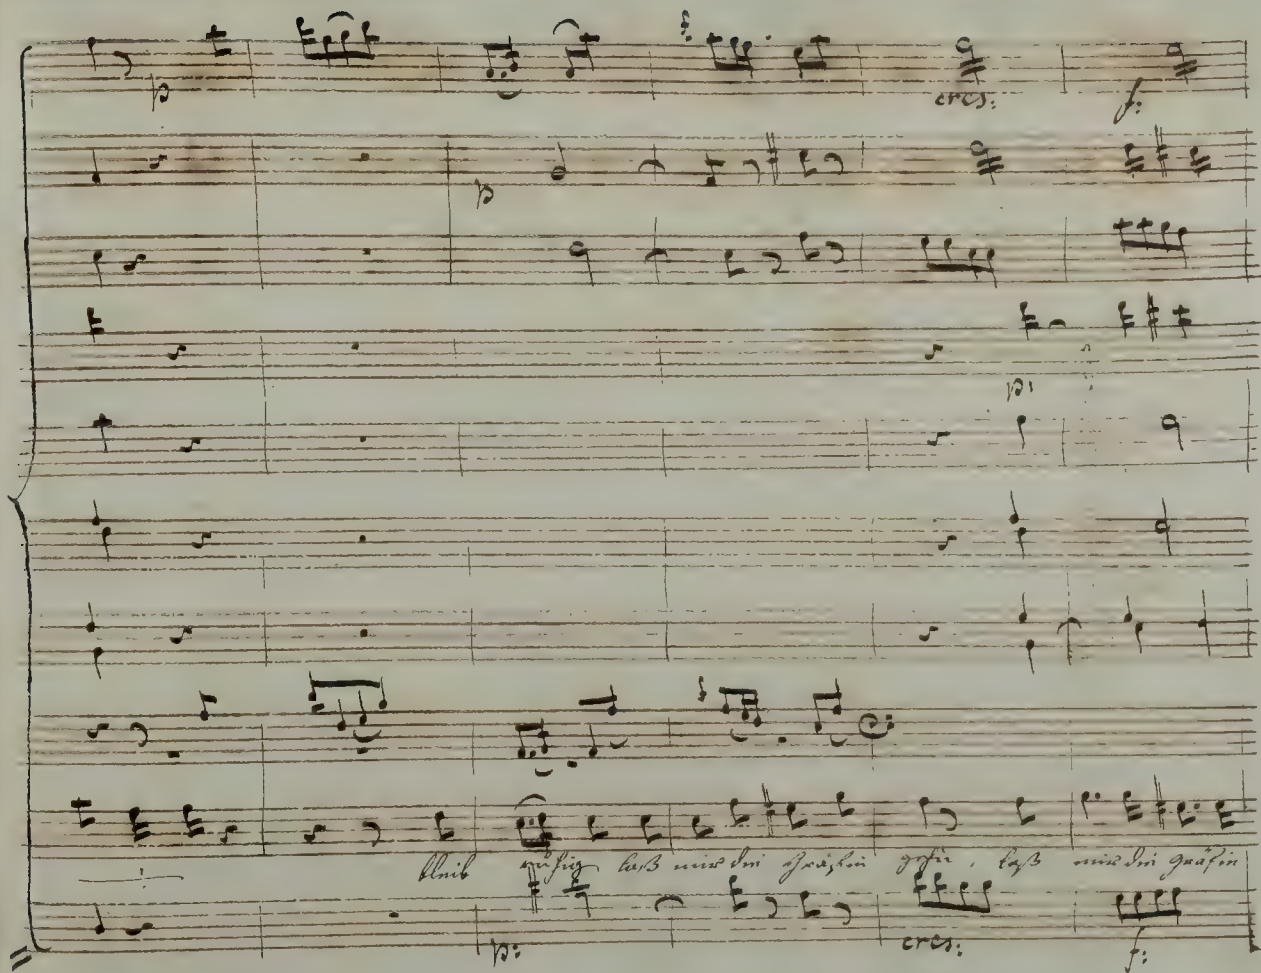 p
cres: f:
p
p:
bleib ruhig laß mir die Gräfin gehn, laß mir die Gräfin
p: cres: f: